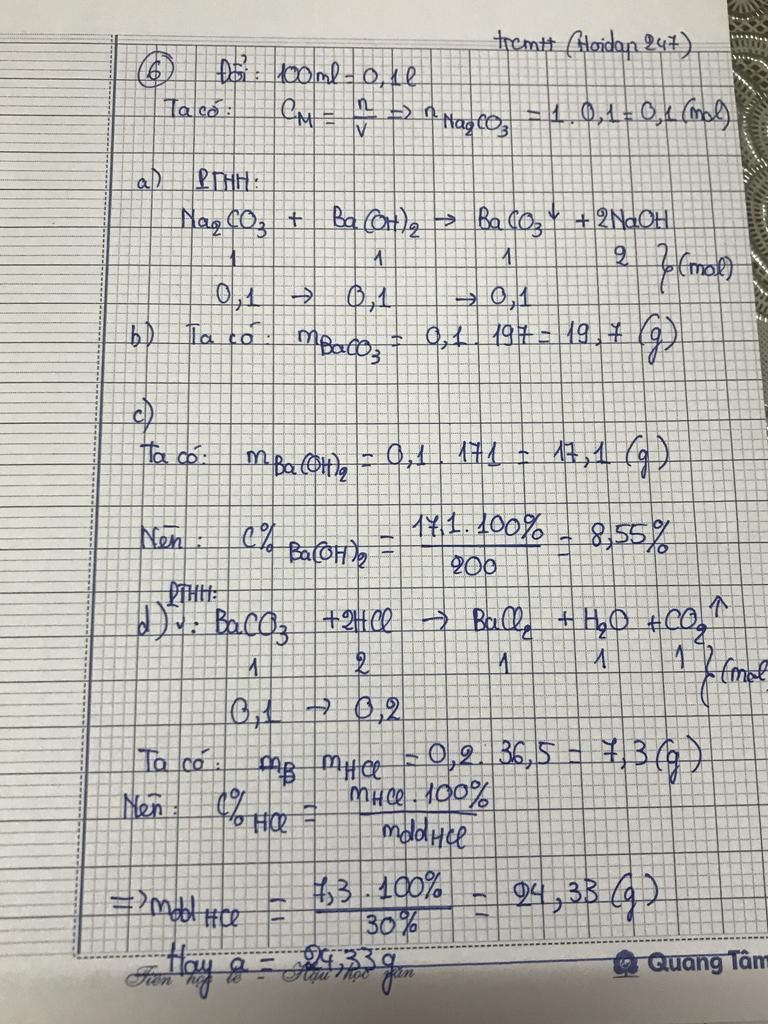 trcmtt (Hoidap 247)
⑥ Đổi: 100ml = 0,1l
Ta có: C_M = n/V => n_Na₂CO₃ = 1 . 0,1 = 0,1 (mol)
a) PTHH:
Na₂CO₃ + Ba(OH)₂ → BaCO₃↓ + 2NaOH
1 1 1 2 } (mol)
0,1 → 0,1 → 0,1
b) Ta có: m_BaCO₃ = 0,1 . 197 = 19,7 (g)
c)
Ta có: m_Ba(OH)₂ = 0,1 . 171 = 17,1 (g)
Nên: C%_Ba(OH)₂ = 17,1 . 100% / 200 = 8,55%
PTHH:
d) BaCO₃ + 2HCl → BaCl₂ + H₂O + CO₂↑
1 2 1 1 1 } (mol
0,1 → 0,2
Ta có: m_B m_HCl = 0,2 . 36,5 = 7,3 (g)
Nên: C%_HCl = m_HCl . 100% / mdd_HCl
=> mdd_HCl = 7,3 . 100% / 30% = 24,33 (g)
Hay a = 24,33g
Tiên học lễ - Hậu học văn
Quang Tâm